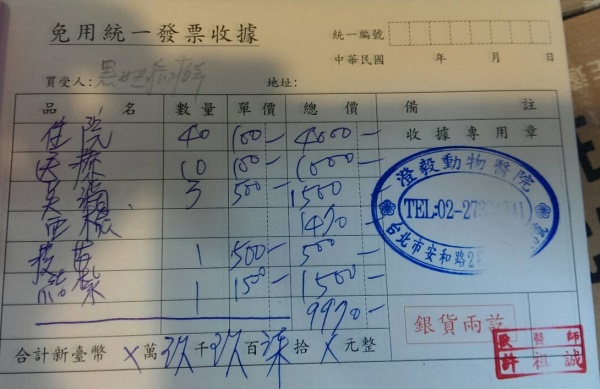 免用統一發票收據
統一編號
中華民國 年 月 日
買受人: 地址:
品 名 數量 單價 總 價 備 註
住院 40 100- 4000-
醫療 10 100- 1000-
3 500- 1500
血檢 1470-
1 500- 500
結紮 1 1500- 1500
9970-
合計新臺幣 X萬玖千玖百柒拾X元整
收據專用章
澄毅動物醫院
TEL:02-27
台北市安和路2
銀貨兩訖
醫師
許祖誠